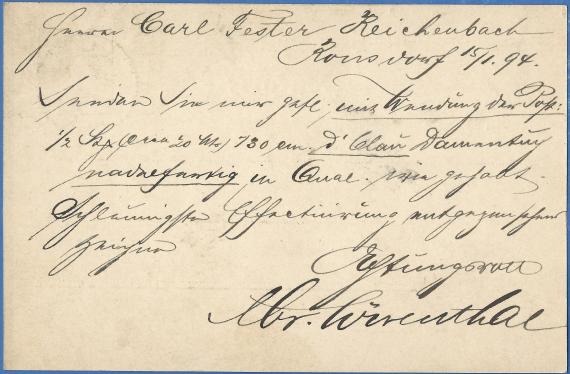 Herrn Carl Fester Reichenbach
Ronsdorf 15/1. 94.
Senden Sie mir gefl. mit Wendung der Post:
1/2 130 cm. d'blau Damentuch
nadelfertig in Qual. wie gehabt.
Schleunigster Effectuirung entgegensehend
zeichne
Achtungsvoll
Abr. Löwenthal